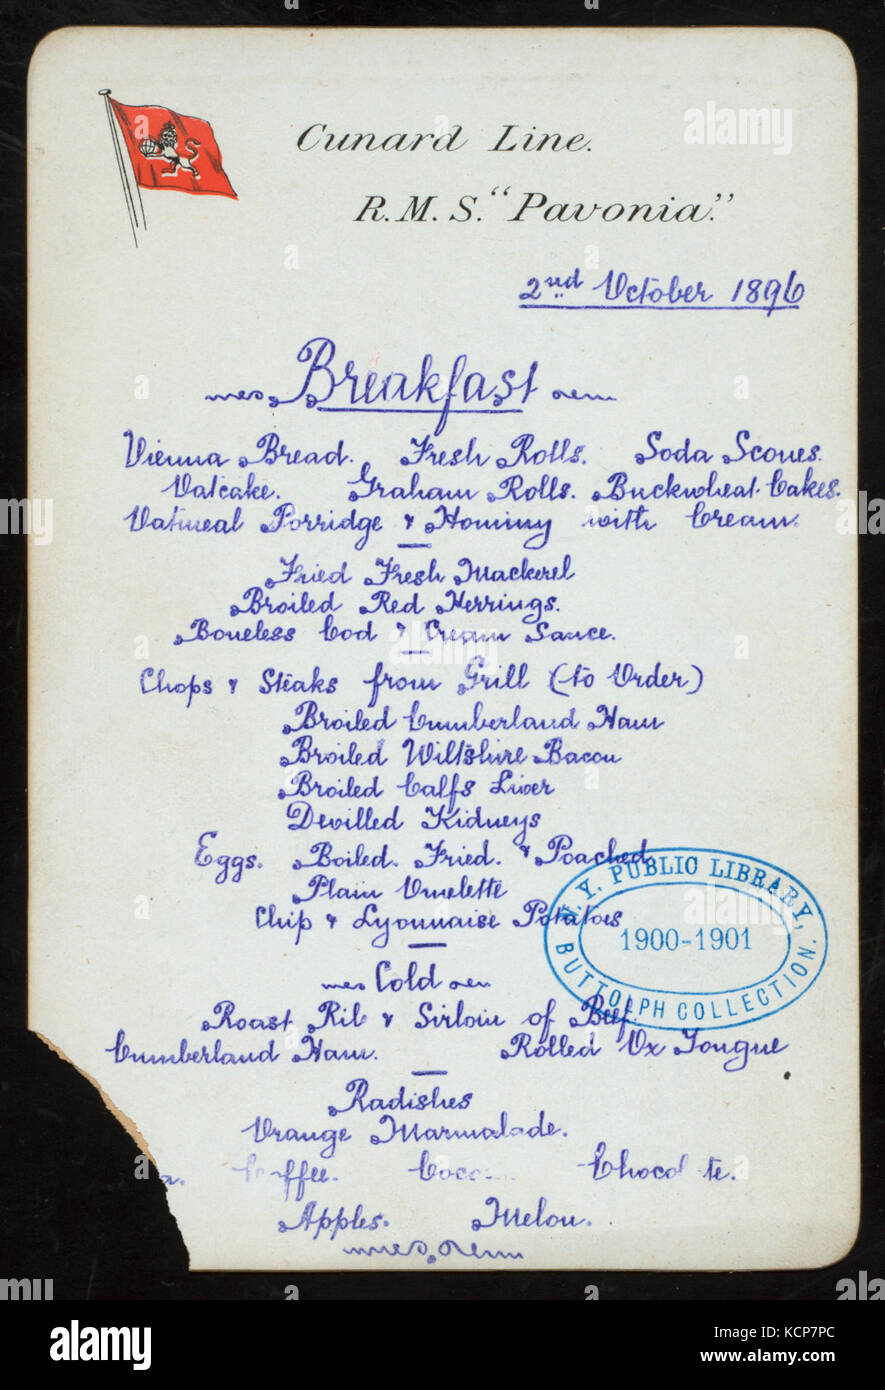 Cunard Line.
R.M.S. "Pavonia."
2nd October 1896
Breakfast
Vienna Bread. Fresh Rolls. Soda Scones.
Oatcake. Graham Rolls. Buckwheat Cakes.
Oatmeal Porridge & Hominy with Cream.
Fried Fresh Mackerel
Broiled Red Herrings.
Boneless Cod & Cream Sauce.
Chops & Steaks from Grill (to Order)
Broiled Cumberland Ham
Broiled Wiltshire Bacon
Broiled Calfs Liver
Devilled Kidneys
Eggs. Boiled. Fried. & Poached
Plain Omelette
Chip & Lyonnaise Potatoes
N.Y. PUBLIC LIBRARY,
1900-1901
BUTTOLPH COLLECTION.
Cold
Roast Rib & Sirloin of Beef.
Cumberland Ham. Rolled Ox Tongue
Radishes
Orange Marmalade.
a. Coffee. Coco Chocolate.
Apples. Melon.
alamy
Image ID: KCP7PC
www.alamy.com